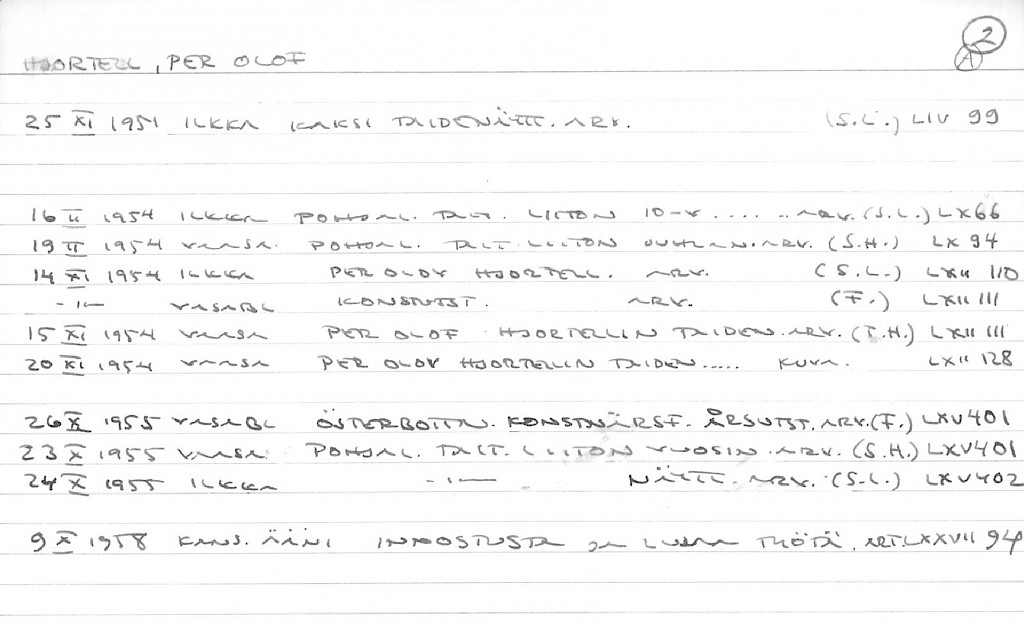 2
A
HJORTELL, PER OLOF
25 XI 1951 ILKKA KAKSI TAIDENÄTT. ARV. (S.L.) LIV 99
16 II 1954 ILKKA POHJAL. TAIT. LIITON 10-V. .... ARV. (S.L.) LX 66
19 II 1954 VAASA. POHJAL. TAIT. LIITON JUHLAN. ARV. (S.H.) LX 94
14 XI 1954 ILKKA PER OLOV HJORTELL. ARV. (S.L.) LXII 110
-"- VASABL KONSTUTST. ARV. (F.) LXII 111
15 XI 1954 VAASA PER OLOF HJORTELLIN TAIDEN. ARV. (T.H.) LXII 111
20 XI 1954 VAASA PER OLOV HJORTELLIN TAIDEN..... KUVA. LXII 128
26 X 1955 VASABL ÖSTERBOTTN. KONSTNÄRSF. ÅRSUTST. ARV. (F.) LXV 401
23 X 1955 VAASA POHJAL. TAIT. LIITON VUOSIN. ARV. (S.H.) LXV 401
24 X 1955 ILKKA -"- NÄTT. ARV. (S.L.) LXV 402
9 X 1958 KANS. ÄÄNI INNOSTUSTA JA LUJAA TYÖTÄ, ART. LXXVII 94